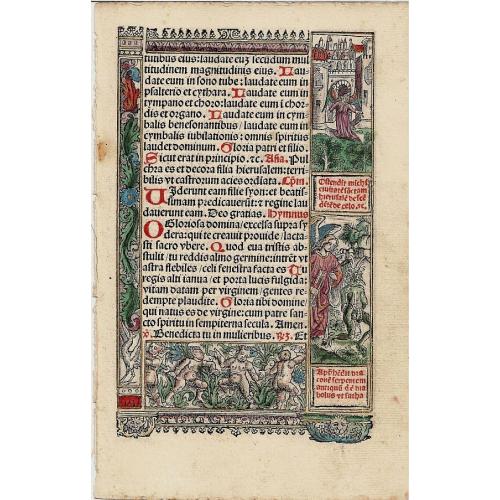 tutibus eius: laudate eũ secũdum mul
titudinem magnitudinis eius. Laudate
date eum in sono tube: laudate eum in
psalterio et cythara. Laudate eum in
tympano et choro: laudate eum ĩ chor
dis et organo. Laudate eum in cym
balis benesonantibus / laudate eum in
cymbalis iubilationis: omnis spiritus
laudet dominum. Gloria patri et filio.
Sicut erat in principio. ⁊c. Aña. Pul
chra es et decora filia hierusalem: terri
bilis vt castrorum acies ordĩata. Cpm.
Uiderunt eam filie syon: et beatis
simam predicauerũt: ⁊ regine lau
dauerunt eam. Deo gratias. Hymnus
O Gloriosa domina / excelsa supra sy
dera: qui te creauit prouide / lacta
sti sacro vbere. Quod eua tristis ab
stulit / tu reddis almo germine: intrẽt vt
astra flebiles / celi fenestra facta es Tu
regis alti ianua / et porta lucis fulgida:
vitam datam per virginem / gentes re
dempte plaudite. Gloria tibi domine /
qui natus es de virgine: cum patre san
cto spiritu in sempiterna secula. Amen.
℣. Benedicta tu in mulieribus. ℞. Et
Ostendit michi
ciuitatẽ sãctam
hierusalẽ
de celo. ⁊c.
serpentem
antiquũ
bolus